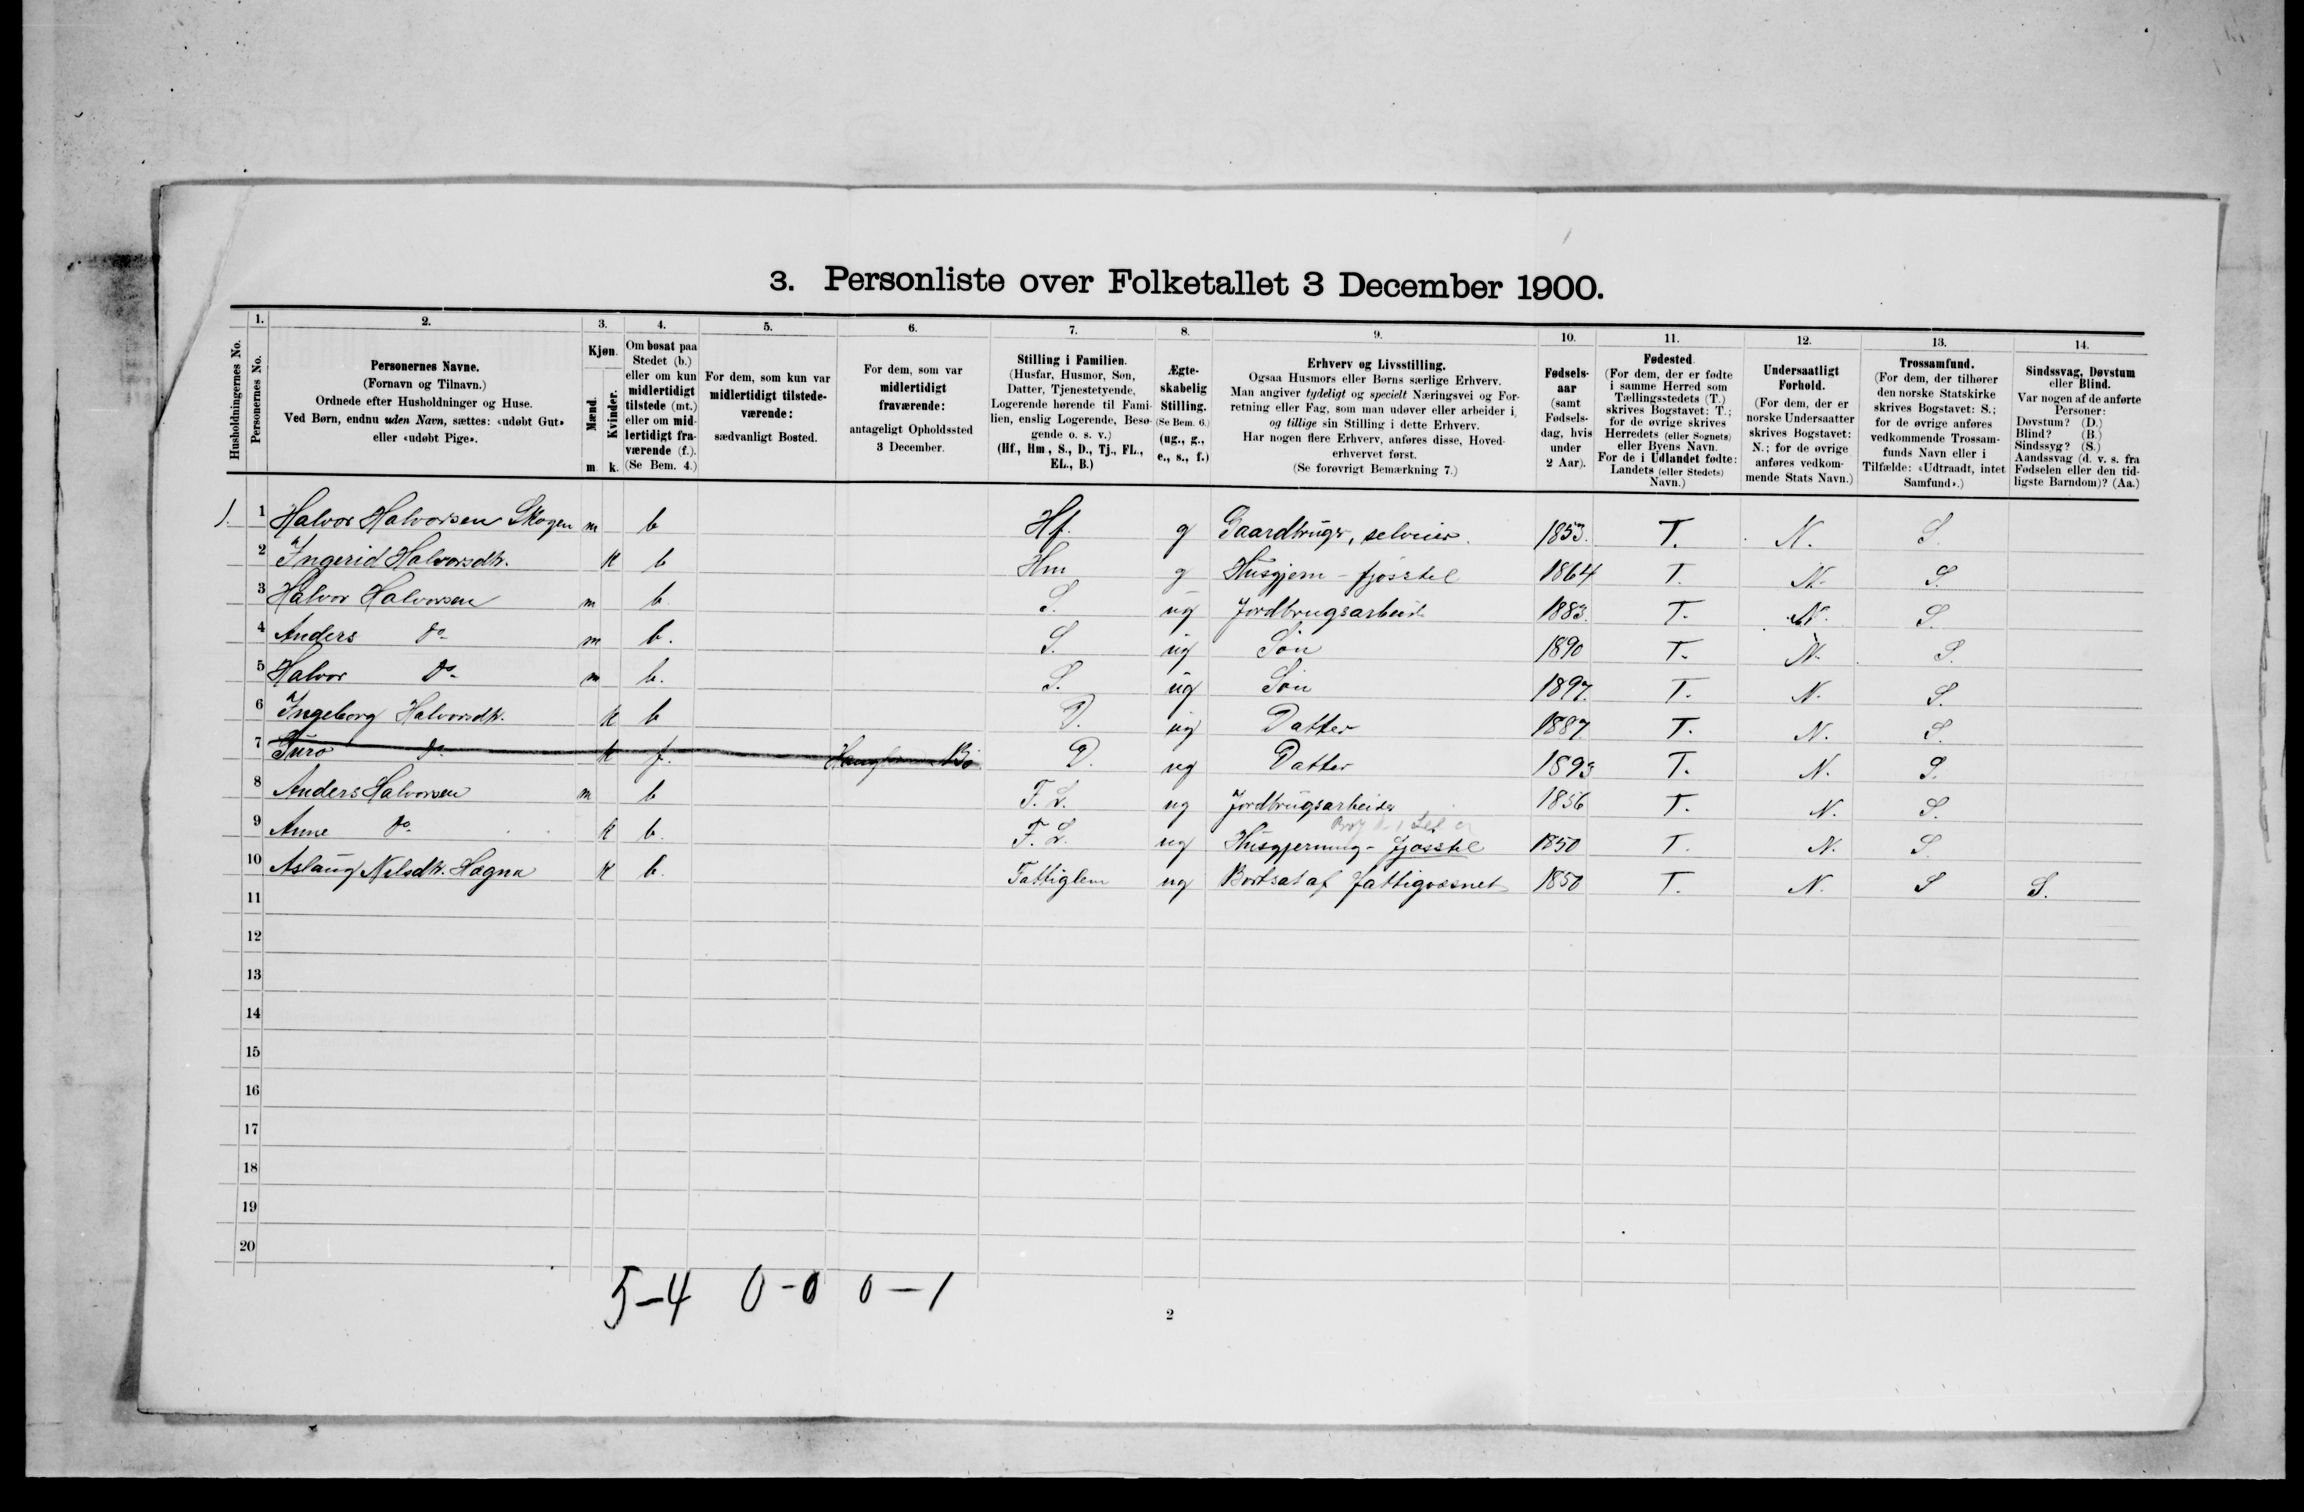 3. Personliste over Folketallet 3 December 1900.
1. 2. 3. 4. 5. 6. 7. 8. 9. 10. 11. 12. 13. 14.
Husholdningernes No.
Personernes No.
Personernes Navne.
(Fornavn og Tilnavn.)
Ordnede efter Husholdninger og Huse.
Ved Børn, endnu uden Navn, sættes: «udøbt Gut»
eller «udøbt Pige».
Kjøn.
Mænd.
Kvinder.
m. k.
Om bosat paa
Stedet (b.)
eller om kun
midlertidigt
tilstede (mt.)
eller om mid-
lertidigt fra-
værende (f.).
(Se Bem. 4.)
For dem, som kun var
midlertidigt tilstede-
værende:
sædvanligt Bosted.
For dem, som var
midlertidigt
fraværende:
antageligt Opholdssted
3 December.
Stilling i Familien.
(Husfar, Husmor, Søn,
Datter, Tjenestetyende,
Logerende hørende til Fami-
lien, enslig Logerende, Besø-
gende o. s. v.)
(Hf., Hm., S., D., Tj., FL.,
EL., B.)
Ægte-
skabelig
Stilling.
(Se Bem. 6.)
(ug., g.,
e., s., f.)
Erhverv og Livsstilling.
Ogsaa Husmors eller Børns særlige Erhverv.
Man angiver tydeligt og specielt Næringsvei og For-
retning eller Fag, som man udøver eller arbeider i,
og tillige sin Stilling i dette Erhverv.
Har nogen flere Erhverv, anføres disse, Hoved-
erhvervet først.
(Se forøvrigt Bemærkning 7.)
Fødsels-
aar
(samt
Fødsels-
dag, hvis
under
2 Aar).
Fødested.
(For dem, der er fødte
i samme Herred som
Tællingsstedets (T.)
skrives Bogstavet: T.;
for de øvrige skrives
Herredets (eller Sognets)
eller Byens Navn.
For de i Udlandet fødte:
Landets (eller Stedets)
Navn.)
Undersaatligt
Forhold.
(For dem, der er
norske Undersaatter
skrives Bogstavet:
N.; for de øvrige
anføres vedkom-
mende Stats Navn.)
Trossamfund.
(For dem, der tilhører
den norske Statskirke
skrives Bogstavet: S.;
for de øvrige anføres
vedkommende Trossam-
funds Navn eller i
Tilfælde: «Udtraadt, intet
Samfund».)
Sindssvag, Døvstum
eller Blind.
Var nogen af de anførte
Personer:
Døvstum? (D.)
Blind? (B.)
Sindssyg? (S.)
Aandssvag (d. v. s. fra
Fødselen eller den tid-
ligste Barndom)? (Aa.)
1. 1 Halvor Halvorsen Skogen m b Hf. g Gaardbruger, selveier. 1853. T. N. S.
2 Ingerid Halvorsdtr. k b Hm g Husgjern - fjosstel 1864 T. N. S.
3 Halvor Halvorsen m b. S. ug Jordbrugsarbeide 1883. T. N. S.
4 Anders do m b. S. ug Søn 1890 T. N. S.
5 Halvor do m b. S. ug Søn 1897. T. N. S.
6 Ingeborg Halvorsdtr. k b D. ug Datter 1887. T. N. S.
7 Guro do k f. Bø. D. ug Datter 1893 T. N. S.
8 Anders Halvorsen m b F. L. ug Jordbrugsarbeider 1856 T. N. S.
9 Anne do k b. F. L. ug Husgjerning - fjosstel 1850 T. N. S.
10 Aslaug Nelsdtr. Hagna k b. Fattiglem ug Bortsat af fattigvæsnet 1850 T. N. S S.
11
12
13
14
15
16
17
18
19
20
5-4 0-0 0-1
2